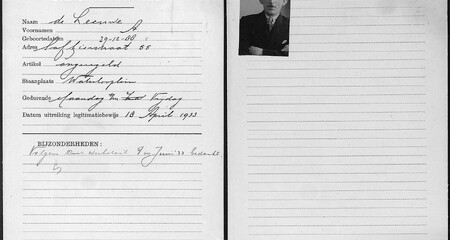 Naam de Leeuw
Voornamen A
Geboortedatum 29-12-88
Adres Saffierstraat 55
Artikel ongeregeld
Staanplaats Waterlooplein
Gedurende Maandag t/m Vrijdag
Datum uitreiking legitimatiebewijs 18 April 1933
BIJZONDERHEDEN:
Volgens 9 Juni 33 bedankt